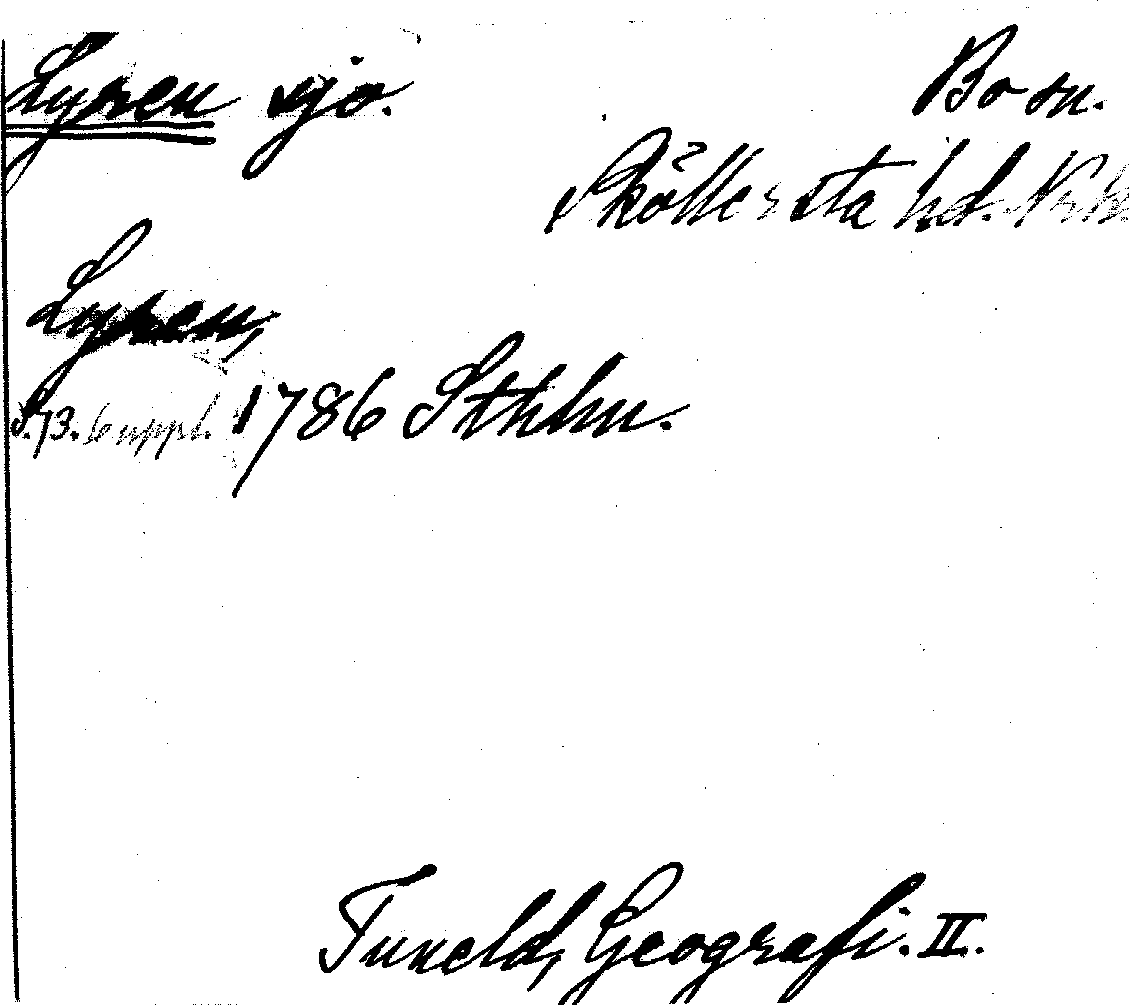 Lyren sjö. Bo sn.
Sköllersta hd. Nrke
Lyren,
S. 73. 6 uppl. 1786 Sthlm.
Tuneld, Geografi. II.